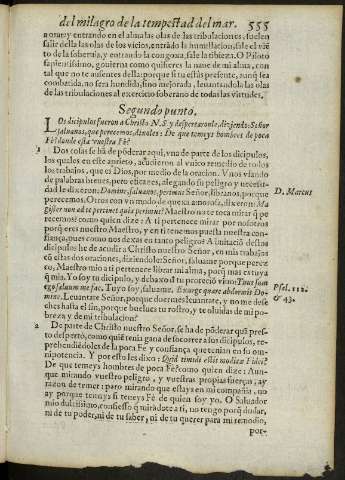 del milagro de la tempestad del mar. 555
a orar y entrando en el alma las olas de las tribulaciones, suelen
salir della las olas de los vicios, entrãdo la humillacion, sale el viẽ
to de la soberuia, y entrando la congoxa, sale la tibieza. O Piloto
sapientissimo, gouierna como quisieres la naue de mi alma, con
tal que no te ausentes della: porque si tu estàs presente, aunq̃ sea
combatida, no sera hundida, sino mejorada, leuantandola las olas
de las tribulaciones al exercicio soberano de todas las virtudes.
Segundo punto.
LOs dicipulos fueron a Christo N.S. y despertaronle, diziendo: Señor
saluanos, que perecemos. Dixoles: De que temeys hombres de poca
Fè? donde està vuestra Fè?
1 Dos cosas se hã de põderar aquì, vna de parte de los dicipulos,
los quales en este aprieto, acudieron al vnico remedio de todos
los trabajos, que es Dios, por medio de la oracion. Vnos vsando
de palabras breues, pero eficaces, alegando su peligro y necessi-
dad le dixeron: Domine, saluanos, perimus: Señor libranos, porque
perecemos. Otros con vn modo de quexa amorosa, dixeron: Ma
gister non ad te pertinet quia perimus? Maestro na te toca mirar q̃ pe
recemos? como quien dize: A ti pertenece mirar por nosotros
porq̃ eres nuestro Maestro, y en ti tenemos puesta nuestra con-
fiança, pues como nos dexas en tanto peligro? A imitaciõ destos
dicipulos he de acudir a Christo nuestro Señor, en mis trabajos
cõ estas dos oraciones, diziendole: Señor, saluame porque perez
co, Maestro mio a ti pertenece librar mi alma, porq̃ mas es tuya
q̃ mia. Yo soy tu dicipulo, y debaxo d̃ tu protecciõ viuo: Tuus sum
ego, saluum me fac. Tuyo soy, saluame. Exurge quare obdormis Do-
mine. Leuantate Señor, porque duermes leuantate, y no me dese
ches hasta el fin, porque buelues tu rostro, y te oluidas de mi po-
breza y de mi tribulacion?
2 De parte de Christo nuestro Señor, se ha de põderar quã pres-
to despertò, como quiẽ tenia gana de socorrer a los dicipulos, re-
prehendiẽdoles de la poca Fè y confiança que tenian en su om-
nipotencia. Y por esto les dixo: Quid timidi estis modicæ Fidei?
De que temeys hombres de poca Fè? como quien dize: Aun-
que mirando vuestro peligro, y vuestras propias fuerças, ay
razon de temer: paro mirando que estaya en mi compañia, no
ay porque temays si teneys Fè de quien soy yo. O Saluador
mio dulcissimo, confiesso q̃ mirãdote a ti, no tengo porq̃ dudar,
ni de tu poder, ni de tu saber, ni de tu querer para mi remedio,
por-
D. Marcus
Psal. 118.
& 43.